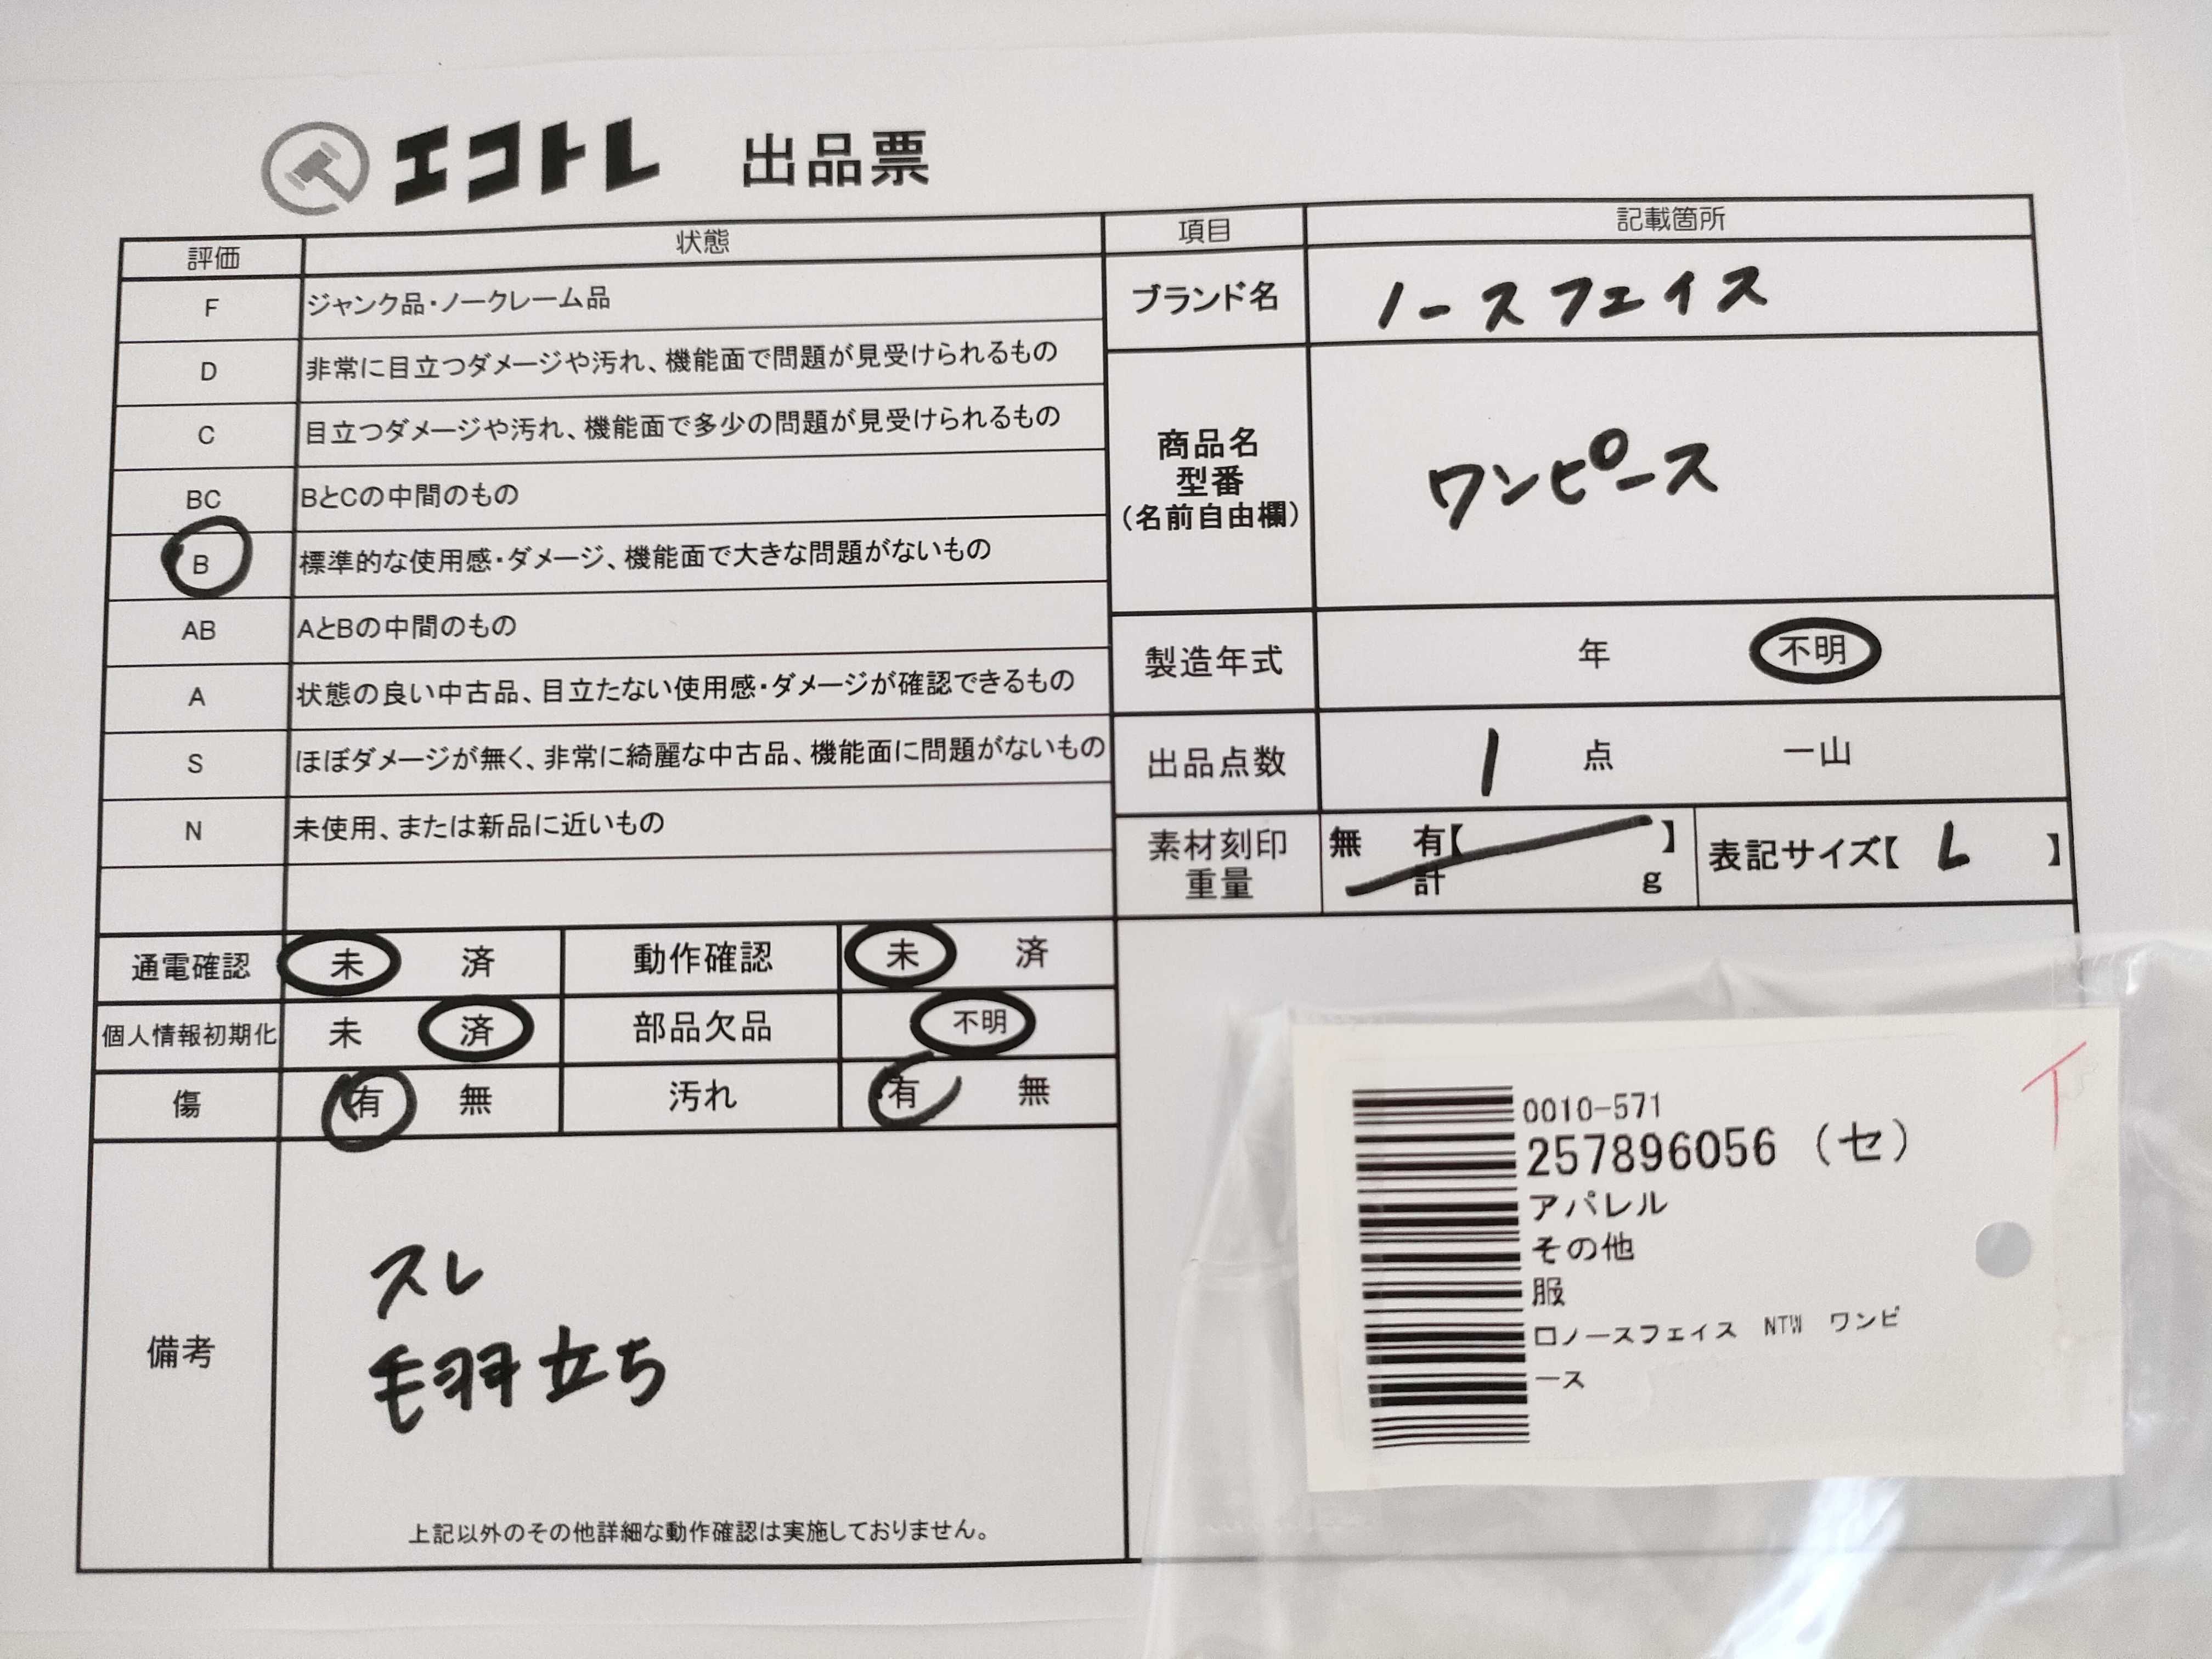 エコトレ 出品票
評価 状態
F ジャンク品・ノークレーム品
D 非常に目立つダメージや汚れ、機能面で問題が見受けられるもの
C 目立つダメージや汚れ、機能面で多少の問題が見受けられるもの
BC BとCの中間のもの
B 標準的な使用感・ダメージ、機能面で大きな問題がないもの
AB AとBの中間のもの
A 状態の良い中古品、目立たない使用感・ダメージが確認できるもの
S ほぼダメージが無く、非常に綺麗な中古品、機能面に問題がないもの
N 未使用、または新品に近いもの
項目 記載箇所
ブランド名 ノースフェイス
商品名
型番
(名前自由欄)
ワンピース
製造年式 年 不明
出品点数 1 点 一山
素材刻印
重量
無 有【 】
計 g
表記サイズ【 L 】
通電確認 未 済 動作確認 未 済
個人情報初期化 未 済 部品欠品 不明
傷 有 無 汚れ 有 無
備考
スレ
毛羽立ち
上記以外のその他詳細な動作確認は実施しておりません。
0010-571
257896056 (セ)
アパレル
その他
服
ロノースフェイス NTW ワンピ
ース